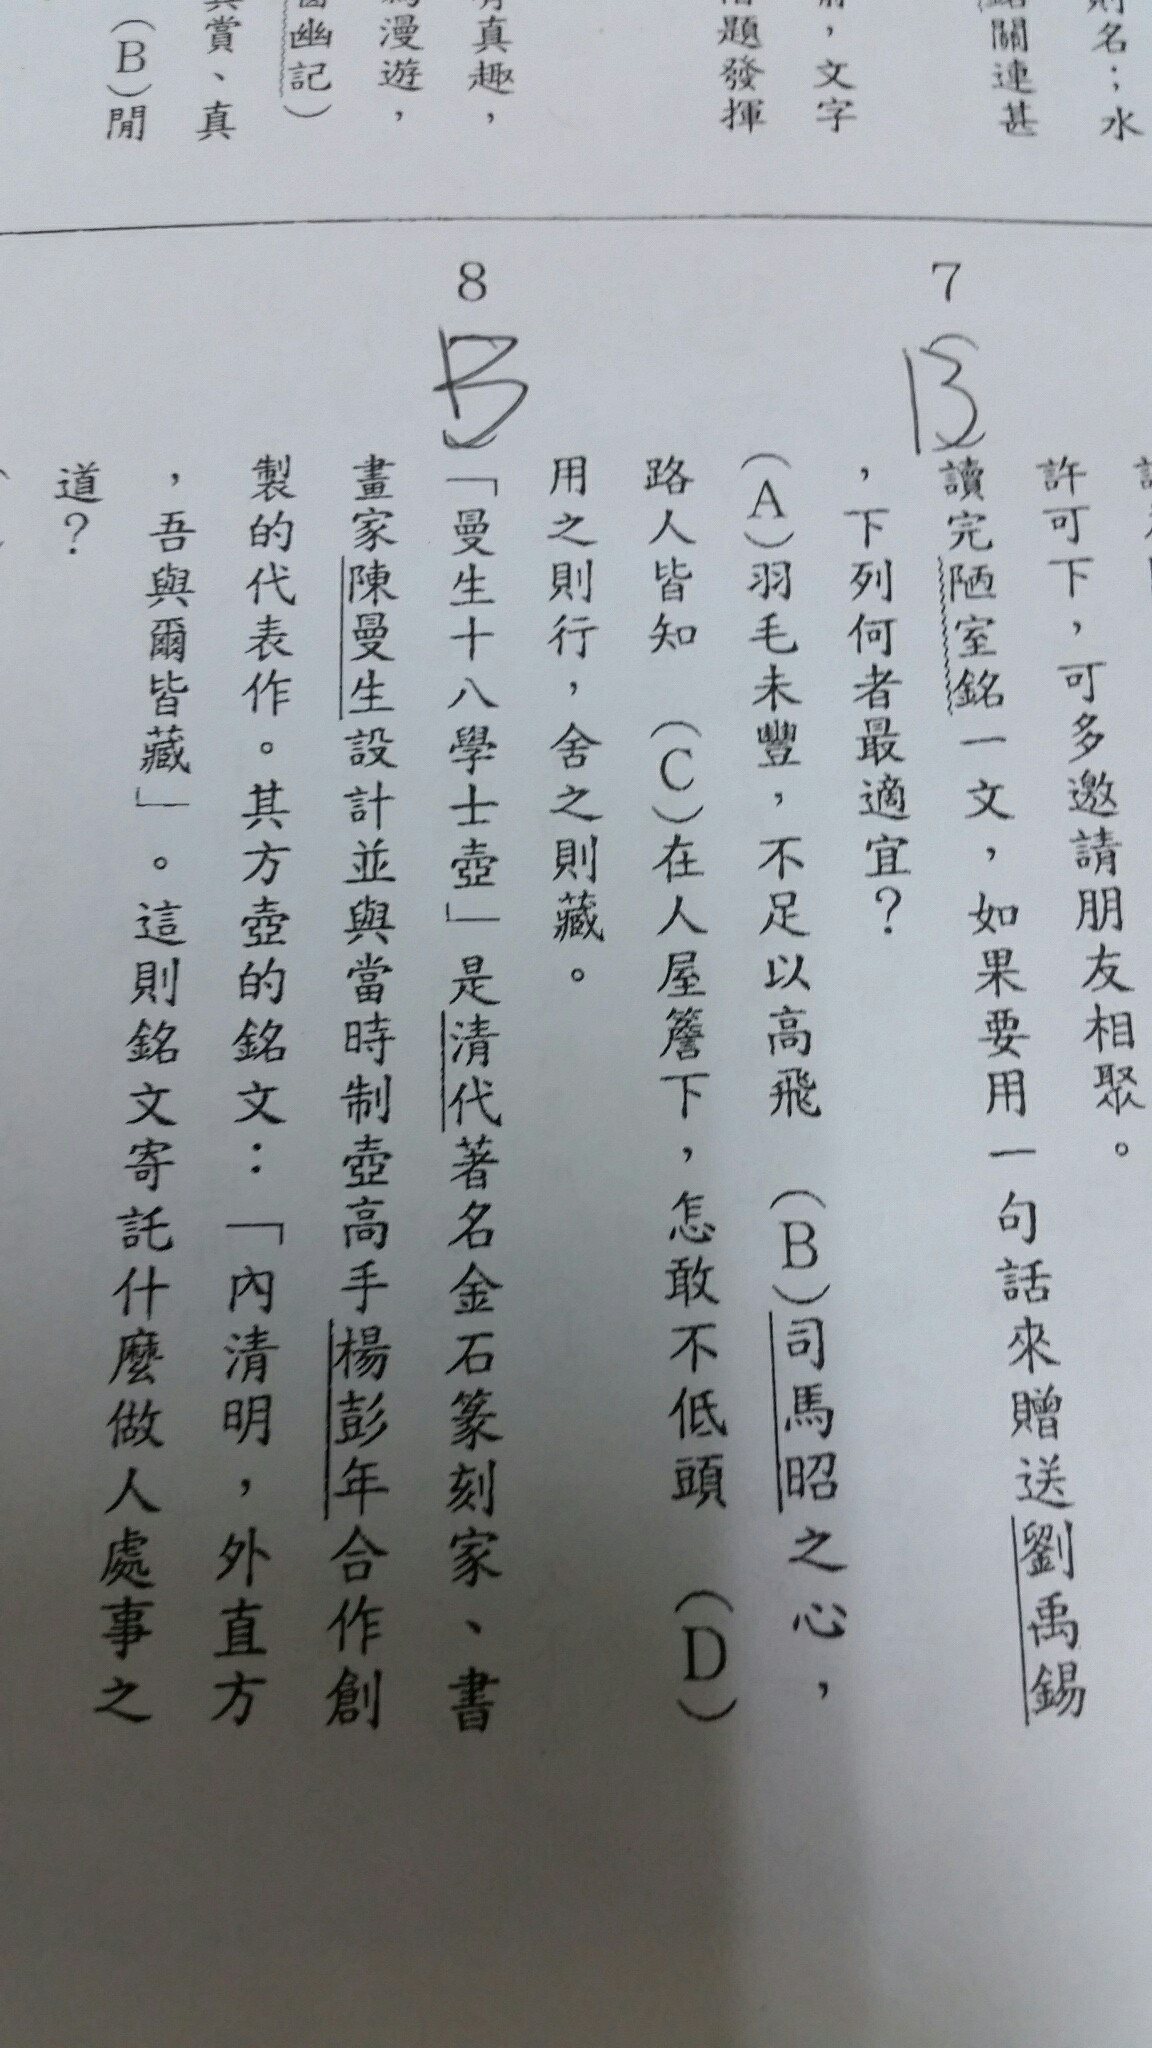 則名；水
銘關連甚
，文字
題發揮
有真趣，
為漫遊，
幽記）
賞、真
（B）閒
許可下，可多邀請朋友相聚。
7
B
讀完陋室銘一文，如果要用一句話來贈送劉禹錫
，下列何者最適宜？
（A）羽毛未豐，不足以高飛　（B）司馬昭之心，
路人皆知　（C）在人屋簷下，怎敢不低頭　（D）
用之則行，舍之則藏。
8
B
「曼生十八學士壺」是清代著名金石篆刻家、書
畫家陳曼生設計並與當時制壺高手楊彭年合作創
製的代表作。其方壺的銘文：「內清明，外直方
，吾與爾皆藏」。這則銘文寄託什麼做人處事之
道？